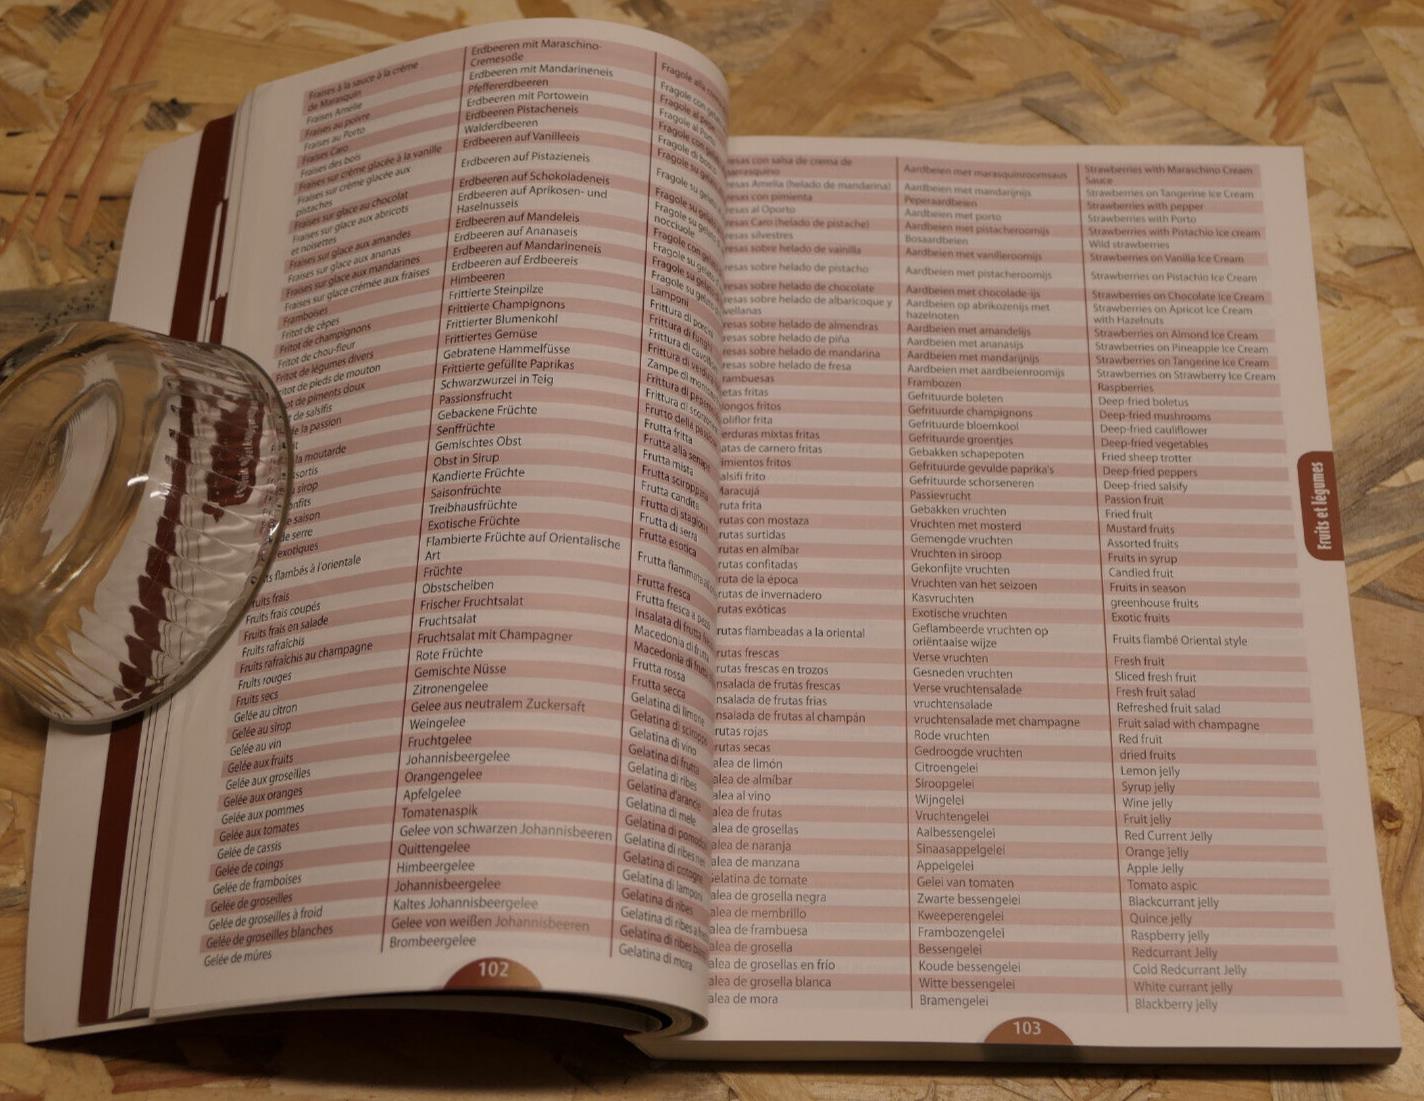 Fraises à la sauce à la crème
de Marasquin
Fraises Amélie
Fraises au poivre
Fraises au Porto
Fraises Caro
Fraises des bois
Fraises sur crème glacée à la vanille
Fraises sur crème glacée aux
pistaches
Fraises sur glace au chocolat
Fraises sur glace aux abricots
et noisettes
Fraises sur glace aux amandes
Fraises sur glace aux ananas
Fraises sur glace aux mandarines
Fraises sur glace crémée aux fraises
Framboises
Fritot de cèpes
Fritot de champignons
Fritot de chou-fleur
Fritot de légumes divers
de pieds de mouton
de piments doux
de salsifis
de la passion
la moutarde
sirop
saison
de serre
exotiques
flambés à l'orientale
Fruits frais
Fruits frais coupés
Fruits frais en salade
Fruits rafraîchis
Fruits rafraîchis au champagne
Fruits rouges
Fruits secs
Gelée au citron
Gelée au sirop
Gelée au vin
Gelée aux fruits
Gelée aux groseilles
Gelée aux oranges
Gelée aux pommes
Gelée aux tomates
Gelée de cassis
Gelée de coings
Gelée de framboises
Gelée de groseilles
Gelée de groseilles à froid
Gelée de groseilles blanches
Gelée de mûres
Erdbeeren mit Maraschino-
Cremesoße
Erdbeeren mit Mandarineneis
Pfeffererdbeeren
Erdbeeren mit Portowein
Erdbeeren Pistacheneis
Walderdbeeren
Erdbeeren auf Vanilleeis
Erdbeeren auf Pistazieneis
Erdbeeren auf Schokoladeneis
Erdbeeren auf Aprikosen- und
Haselnusseis
Erdbeeren auf Mandeleis
Erdbeeren auf Ananaseis
Erdbeeren auf Mandarineneis
Erdbeeren auf Erdbeereis
Himbeeren
Frittierte Steinpilze
Frittierte Champignons
Frittierter Blumenkohl
Frittiertes Gemüse
Gebratene Hammelfüsse
Frittierte gefüllte Paprikas
Schwarzwurzel in Teig
Passionsfrucht
Gebackene Früchte
Senffrüchte
Gemischtes Obst
Obst in Sirup
Kandierte Früchte
Saisonfrüchte
Treibhausfrüchte
Exotische Früchte
Flambierte Früchte auf Orientalische
Art
Früchte
Obstscheiben
Frischer Fruchtsalat
Fruchtsalat
Fruchtsalat mit Champagner
Rote Früchte
Gemischte Nüsse
Zitronengelee
Gelee aus neutralem Zuckersaft
Weingelee
Fruchtgelee
Johannisbeergelee
Orangengelee
Apfelgelee
Tomatenaspik
Gelee von schwarzen Johannisbeeren
Quittengelee
Himbeergelee
Johannisbeergelee
Kaltes Johannisbeergelee
Gelee von weißen Johannisbeeren
Brombeergelee
Fragole alla
Fragole con
Fragole al
Fragole al
Fragole con
Fragole di
Fragole su
Fragole su
Fragole su
Fragole su
nocciuole
Fragole con
Fragole su
Fragole su
Fragole su
Lamponi
Frittura di
Frittura di
Frittura di
Frittura di
Zampe di
Frittura di
Frittura di
Frutto della
Frutta fritta
Frutta alla
Frutta mista
Frutta sciroppata
Frutta candita
Frutta di stagione
Frutta di serra
Frutta esotica
Frutta fiammata
Frutta fresca
Frutta fresca a
Insalata di frutta
Macedonia di
Macedonia di
Frutta rossa
Frutta secca
Gelatina di limone
Gelatina di
Gelatina di vino
Gelatina di frutta
Gelatina di ribes
Gelatina d'arancia
Gelatina di mele
Gelatina di
Gelatina di ribes
Gelatina di
Gelatina di
Gelatina di ribes
Gelatina di ribes a
Gelatina di ribes
Gelatina di mora
102
con salsa de crema de
Amelia (helado de mandarina)
con pimienta
al Oporto
Caro (helado de pistache)
silvestres
sobre helado de vainilla
sobre helado de pistacho
sobre helado de chocolate
sobre helado de albaricoque y
sobre helado de almendras
sobre helado de piña
sobre helado de mandarina
sobre helado de fresa
fritas
fritos
frita
mixtas fritas
de carnero fritas
fritos
frito
frita
con mostaza
surtidas
en almíbar
confitadas
de la época
de invernadero
exóticas
flambeadas a la oriental
frescas
frescas en trozos
de frutas frescas
de frutas frias
de frutas al champán
rojas
secas
de limón
de almíbar
al vino
de frutas
de grosellas
de naranja
de manzana
de tomate
de grosella negra
de membrillo
de frambuesa
de grosella
de grosellas en frío
de grosella blanca
de mora
Aardbeien met marasquinroomsaus
Aardbeien met mandarijnijs
Peperaardbeien
Aardbeien met porto
Aardbeien met pistacheroomijs
Bosaardbeien
Aardbeien met vanilleroomijs
Aardbeien met pistacheroomijs
Aardbeien met chocolade-ijs
Aardbeien op abrikozenijs met
hazelnoten
Aardbeien met amandelijs
Aardbeien met ananasijs
Aardbeien met mandarijnijs
Aardbeien met aardbeienroomijs
Frambozen
Gefrituurde boleten
Gefrituurde champignons
Gefrituurde bloemkool
Gefrituurde groentjes
Gebakken schapepoten
Gefrituurde gevulde paprika's
Gefrituurde schorseneren
Passievrucht
Gebakken vruchten
Vruchten met mosterd
Gemengde vruchten
Vruchten in siroop
Gekonfijte vruchten
Vruchten van het seizoen
Kasvruchten
Exotische vruchten
Geflambeerde vruchten op
oriëntaaise wijze
Verse vruchten
Gesneden vruchten
Verse vruchtensalade
vruchtensalade
vruchtensalade met champagne
Rode vruchten
Gedroogde vruchten
Citroengelei
Siroopgelei
Wijngelei
Vruchtengelei
Aalbessengelei
Sinaasappelgelei
Appelgelei
Gelei van tomaten
Zwarte bessengelei
Kweeperengelei
Frambozengelei
Bessengelei
Koude bessengelei
Witte bessengelei
Bramengelei
Strawberries with Maraschino Cream
Sauce
Strawberries on Tangerine Ice Cream
Strawberries with pepper
Strawberries with Porto
Strawberries with Pistachio Ice cream
Wild strawberries
Strawberries on Vanilla Ice Cream
Strawberries on Pistachio Ice Cream
Strawberries on Chocolate Ice Cream
Strawberries on Apricot Ice Cream
with Hazelnuts
Strawberries on Almond Ice Cream
Strawberries on Pineapple Ice Cream
Strawberries on Tangerine Ice Cream
Strawberries on Strawberry Ice Cream
Raspberries
Deep-fried boletus
Deep-fried mushrooms
Deep-fried cauliflower
Deep-fried vegetables
Fried sheep trotter
Deep-fried peppers
Deep-fried salsify
Passion fruit
Fried fruit
Mustard fruits
Assorted fruits
Fruits in syrup
Candied fruit
Fruits in season
greenhouse fruits
Exotic fruits
Fruits flambé Oriental style
Fresh fruit
Sliced fresh fruit
Fresh fruit salad
Refreshed fruit salad
Fruit salad with champagne
Red fruit
dried fruits
Lemon jelly
Syrup jelly
Wine jelly
Fruit jelly
Red Current Jelly
Orange jelly
Apple Jelly
Tomato aspic
Blackcurrant jelly
Quince jelly
Raspberry jelly
Redcurrant Jelly
Cold Redcurrant Jelly
White currant jelly
Blackberry jelly
103
Fruits et légumes